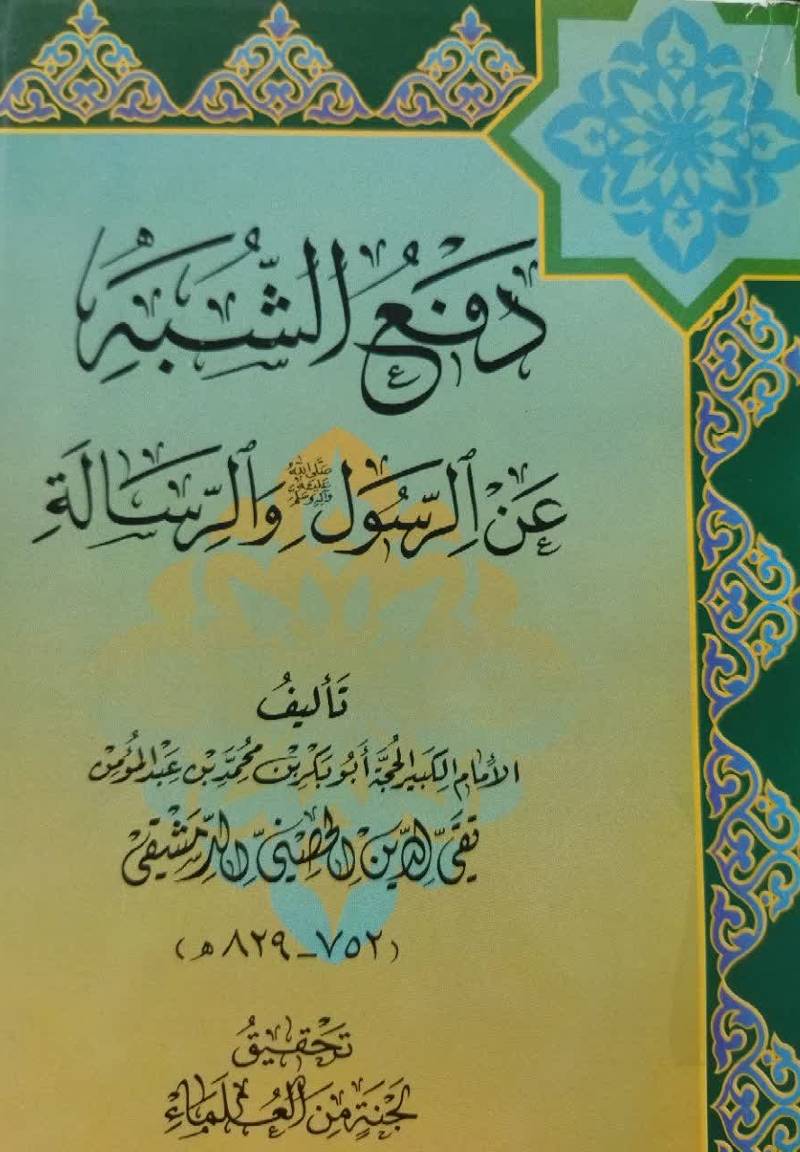 دَفْعُ الشُّبَهِ
عَنِ ٱلرَّسُولِ صَلَّى اللَّه عَلَيْهِ وَآلِهِ وَسَلَّمَ وَٱلرِّسَالَةِ
تَأليفُ
الأمام الكبير الحجة أبو بكر بن محمّد بن عبد المؤمن
تقيّ الدين الحصنيّ الدمشقي
(٧٥٢ - ٨٢٩ هـ)
تحقيقُ
لجنَةٍ مِنَ العُلَماءِ